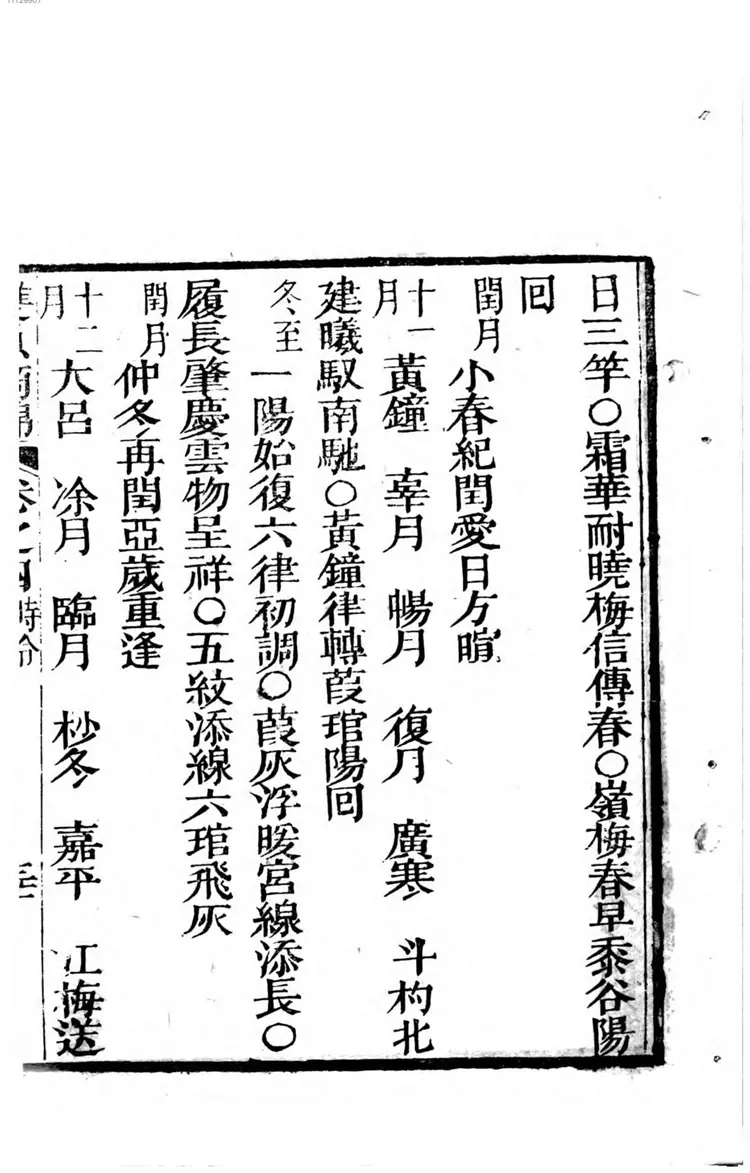 11129907
日三竿○霜華耐曉梅信傳春○嶺梅春早黍谷陽
回
閏月小春紀閏愛日方暄
十一月黃鐘 辜月 暢月 復月 廣寒 斗杓北
建曦馭南馳○黃鐘律轉葭琯陽回
冬至一陽始復六律初調○葭灰浮暖宮線添長○
履長肇慶雲物呈祥○五紋添線六琯飛灰
閏月仲冬再閏亞歲重逢
十二月大呂 凃月 臨月 杪冬 嘉平 江梅送
卷之四 時令